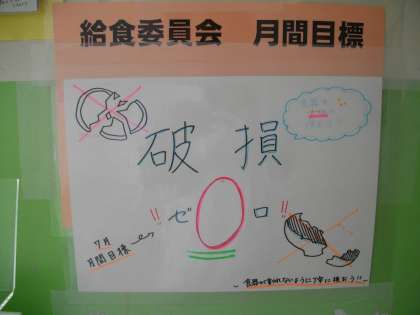 給食委員会 月間目標
破損
‼ゼ0ロ‼
7月
月間目標
食器が割れないように丁寧に扱おう!!